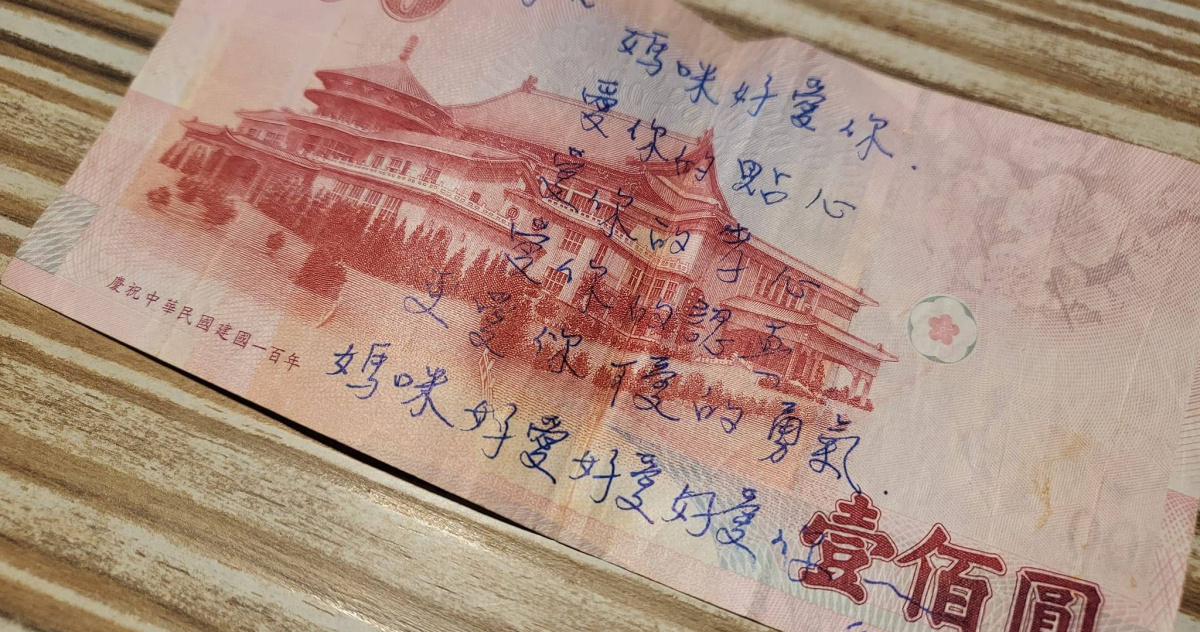 媽咪好愛你.
愛你的貼心
愛你的孝心
愛你的認真
更愛你 的勇氣.
媽咪好愛好愛好愛你
慶祝中華民國建國一百年
壹佰圓